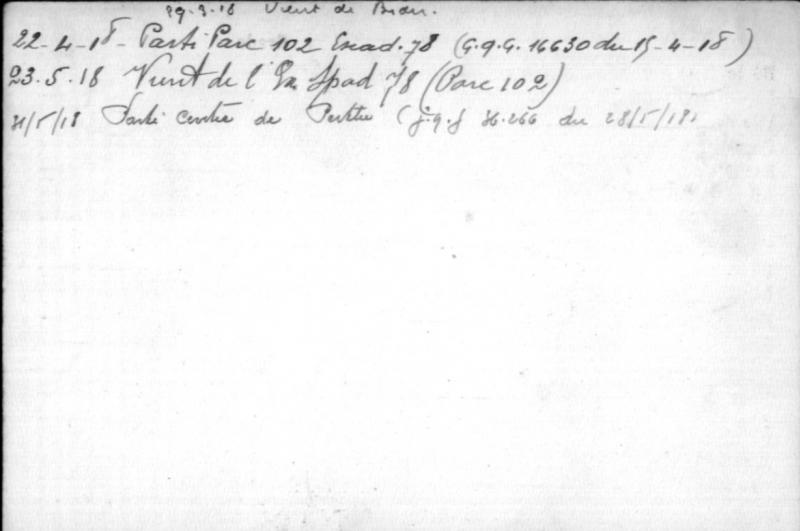 29.3.18 Vient de
22-4-18- Parti Parc 102 Escad. 78 (G.Q.G. 16630 du 15-4-18)
23.5.18 Vient de l'Es. Spad 78 (Parc 102)
31/5/18 Parti centre de (g.q.g 266 du 28/5/18)